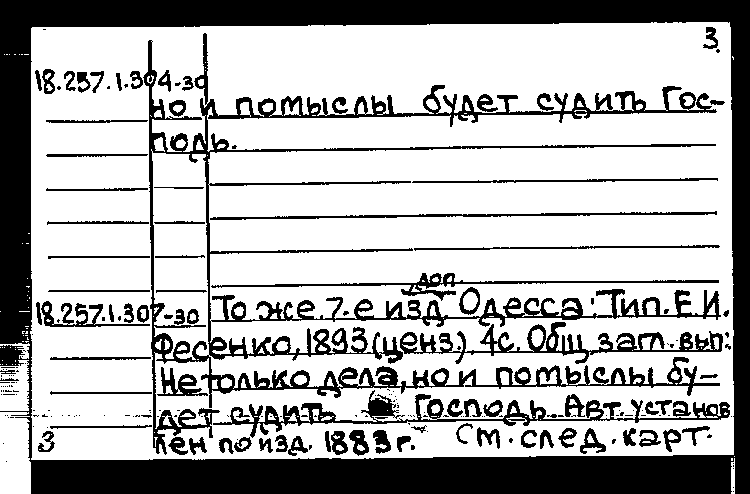 3.
18.257.1.304-30
но и помыслы будет судить Гос-
подь.
доп.
18.257.1.307-30 То же. 7-е изд. Одесса: Тип. Е.И.
Фесенко, 1893 (ценз.). 4с. Общ. загл. вып:
Не только дела, но и помыслы бу-
дет судить Господь. Авт. установ
лен по изд. 1883 г. См. след. карт.
3